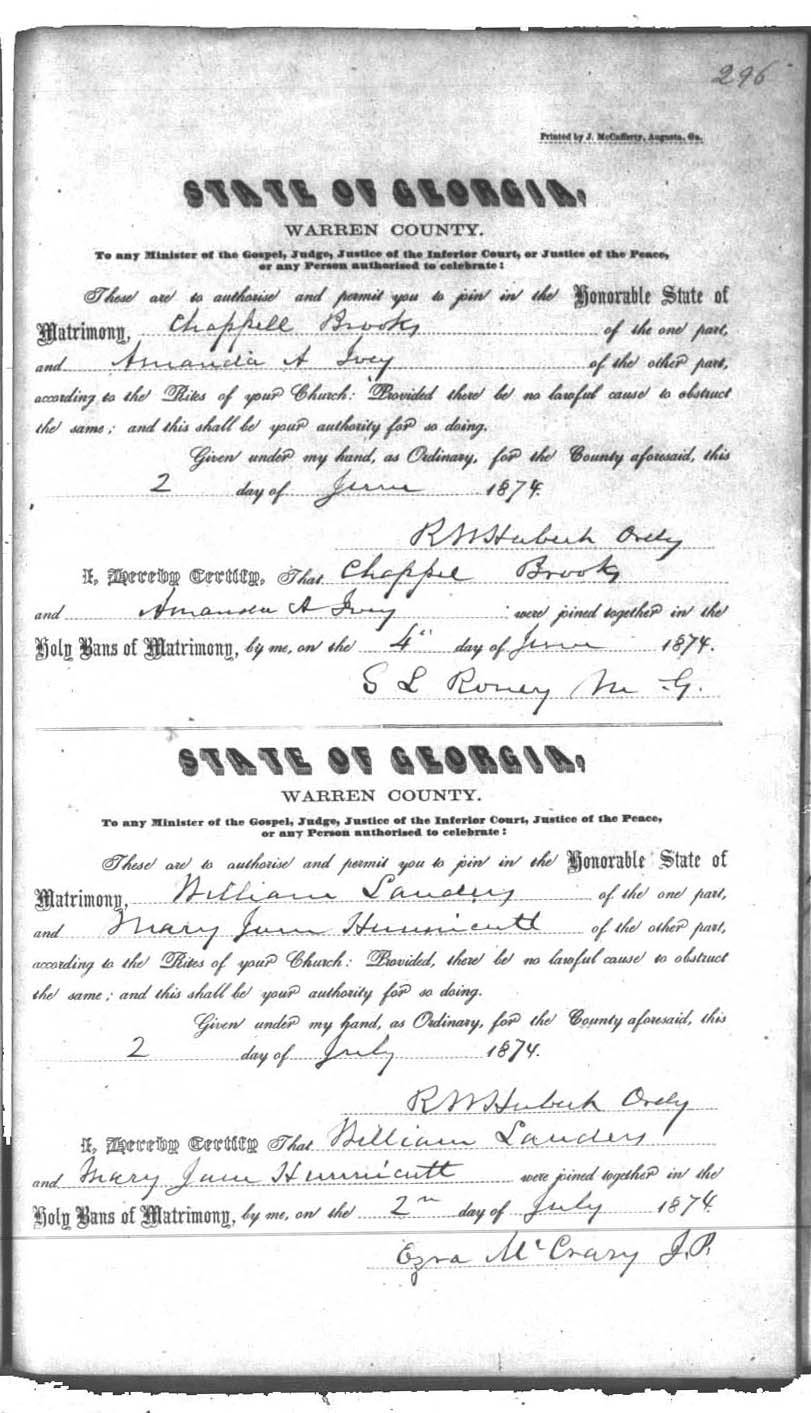 296
Printed by J. McCafferty, Augusta, Ga.
STATE OF GEORGIA,
WARREN COUNTY.
To any Minister of the Gospel, Judge, Justice of the Inferior Court, or Justice of the Peace,
or any Person authorised to celebrate:
These are to authorise and permit you to join in the Honorable State of
Matrimony, Chappell Brooks of the one part,
and Amanda A Ivey of the other part,
according to the Rites of your Church: Provided there be no lawful cause to obstruct
the same; and this shall be your authority for so doing.
Given under my hand, as Ordinary, for the County aforesaid, this
2 day of June 1874.
R W Hubert Ordy
I, Hereby Certify, That Chappel Brooks
and Amanda A Ivey were joined together in the
Holy Bans of Matrimony, by me, on the 4" day of June 1874.
S L Roney M G.
STATE OF GEORGIA,
WARREN COUNTY.
To any Minister of the Gospel, Judge, Justice of the Inferior Court, Justice of the Peace,
or any Person authorised to celebrate:
These are to authorise and permit you to join in the Honorable State of
Matrimony, William Landers of the one part,
and Mary Jane Hunnicutt of the other part,
according to the Rites of your Church: Provided, there be no lawful cause to obstruct
the same; and this shall be your authority for so doing.
Given under my hand, as Ordinary, for the County aforesaid, this
2 day of July 1874.
R W Hubert Ordy
I, Hereby Certify That William Landers
and Mary Jane Hunnicutt were joined together in the
Holy Bans of Matrimony, by me, on the 2n day of July 1874
Ezra McCrary J.P.